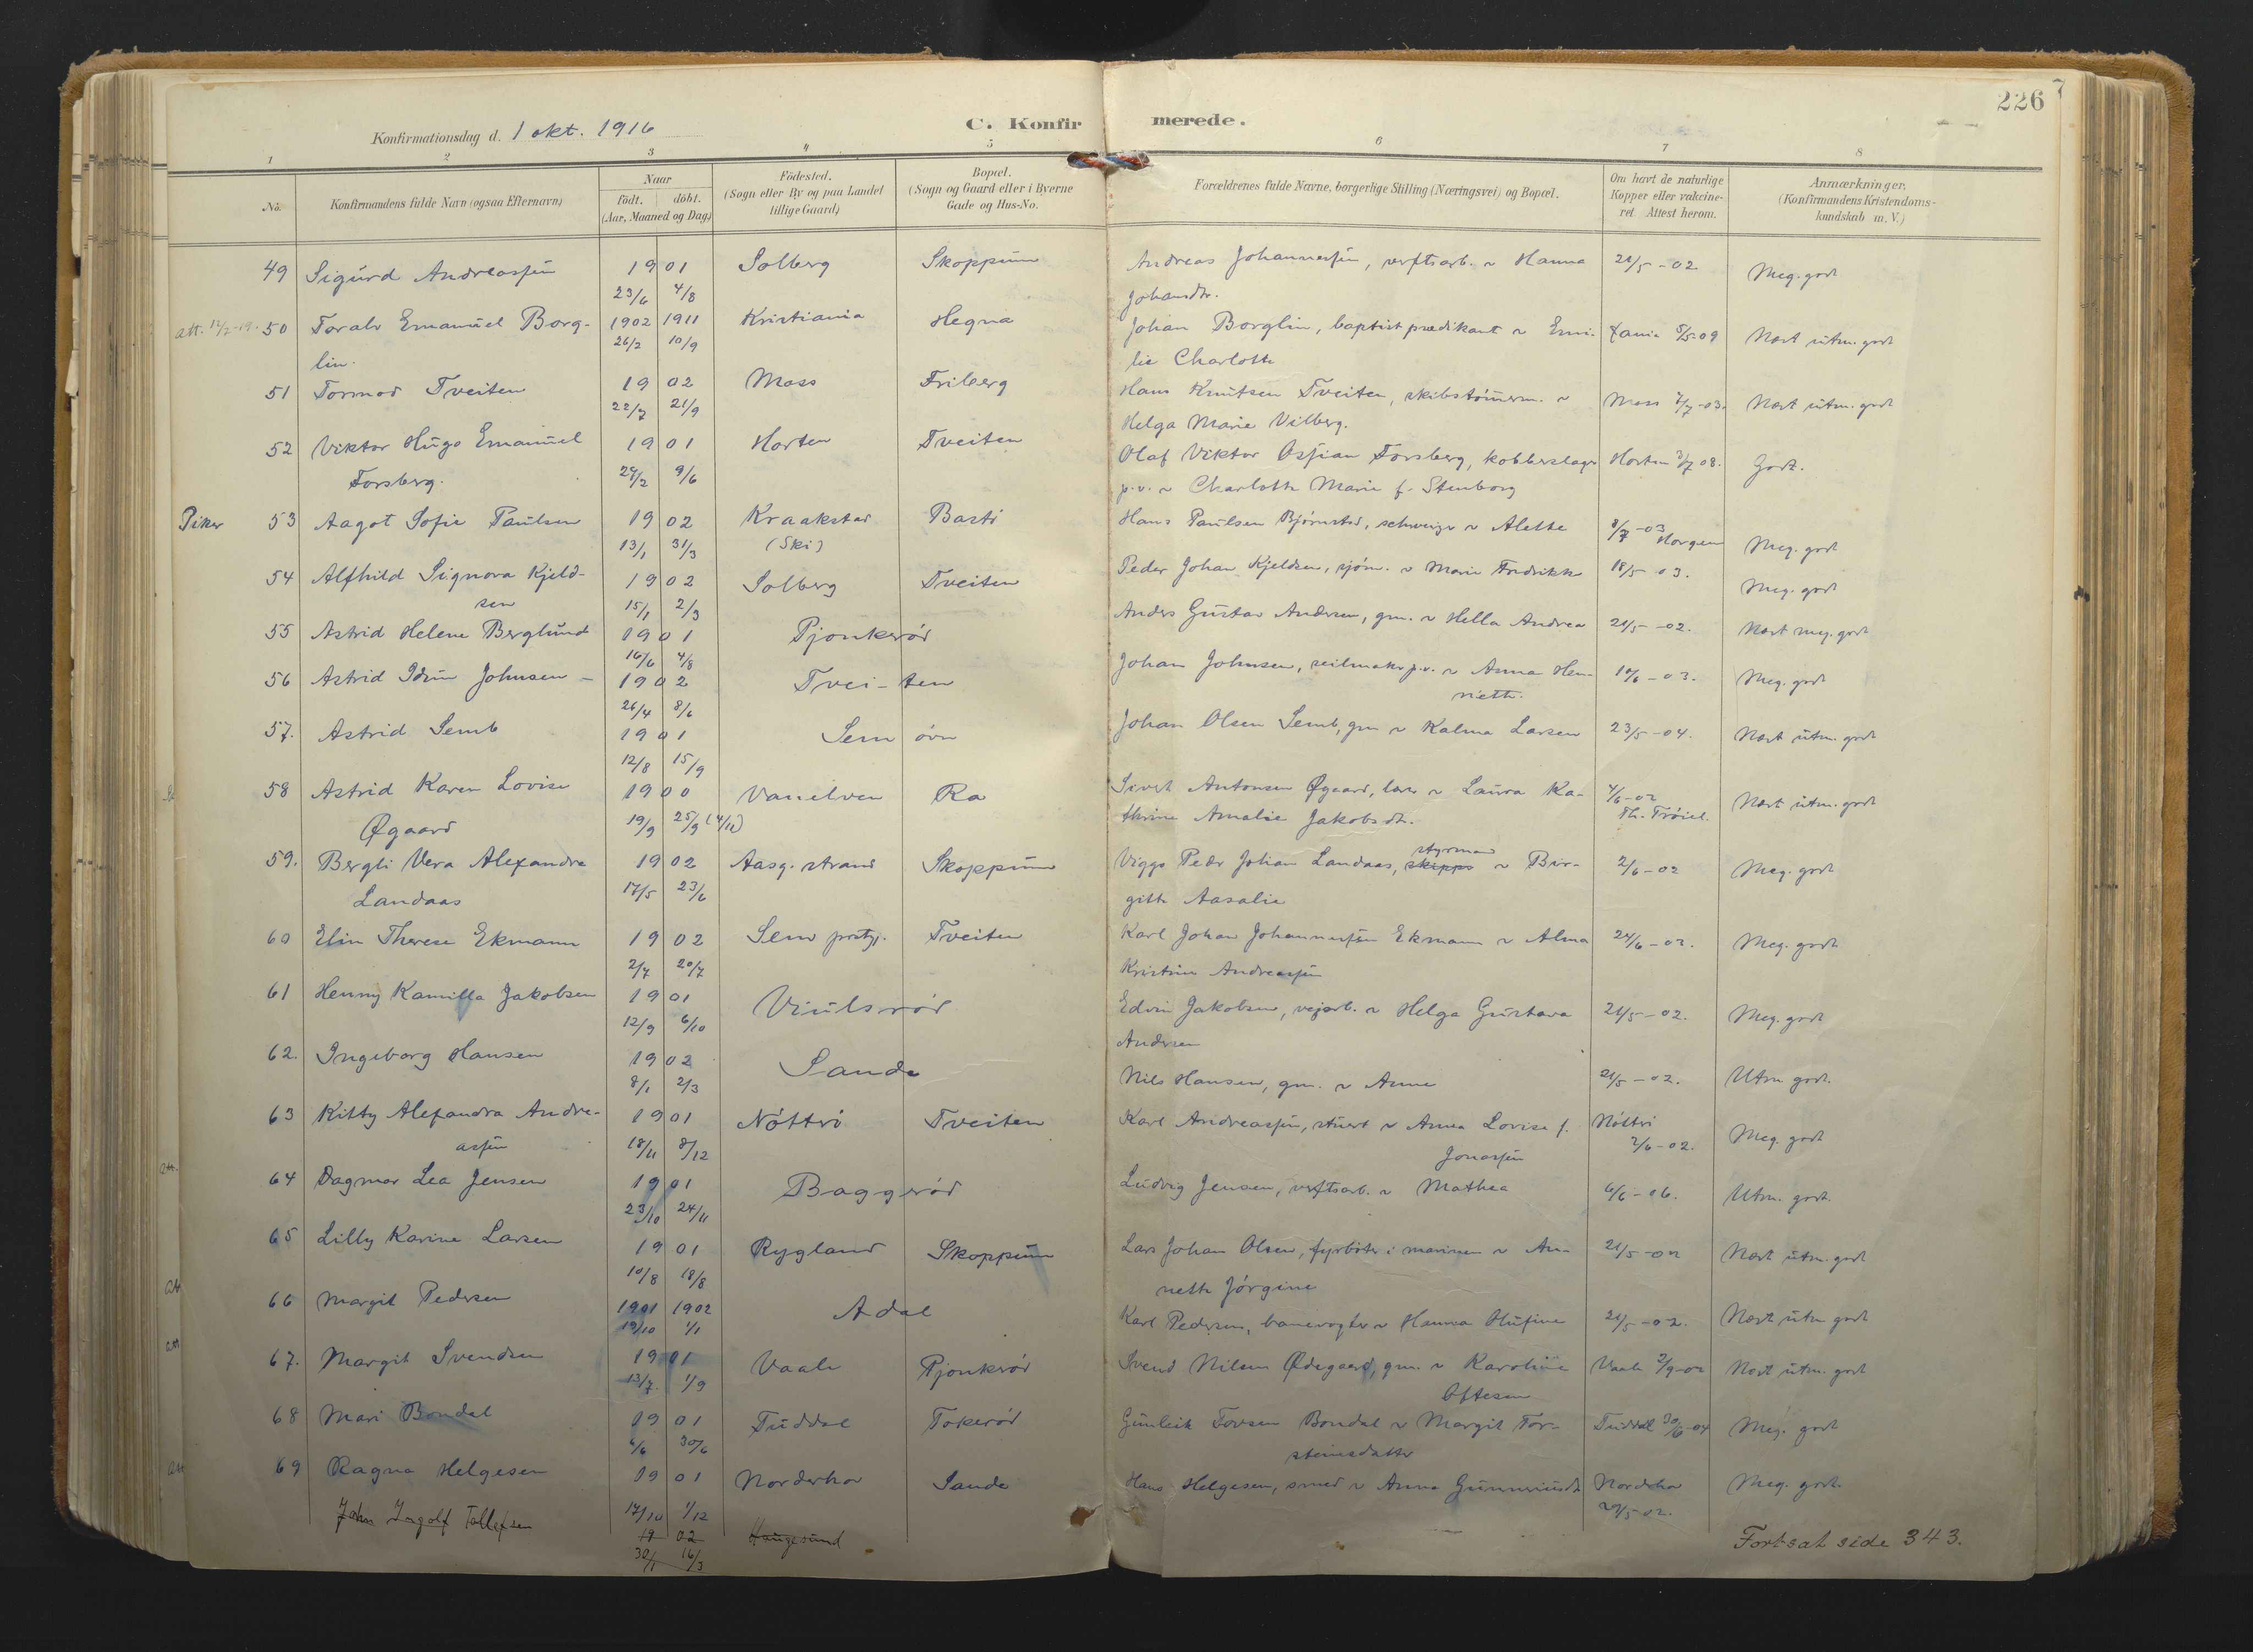 226
Konfirmationsdag d. 1 okt. 1916
C. Konfirmerede.
1 2 3 4 5 6 7 8
No. Konfirmandens fulde Navn (ogsaa Efternavn) Naar født. døbt. (Aar, Maaned og Dag) Fødested. (Sogn eller By og paa Landet tillige Gaard) Bopæl. (Sogn og Gaard eller i Byerne Gade og Hus-No. Forældrenes fulde Navne, borgerlige Stilling (Næringsvei) og Bopæl. Om havt de naturlige Kopper eller vakcineret. Attest herom. Anmærkninger. (Konfirmandens Kristendomskundskab m. V.)
49 Sigurd Andreassen 1901 Solberg Skoppum Andreas Johannessen, verftsarb. & Hanna 21/5 -02 Meg. godt
23/6 4/8 Johansdtr.
att. 12/2-19. 50 Toralv Emanuel Borg- 1902 1911 Kristiania Hegna Johan Borglin, baptistprædikant & Emi- Xania 5/5-09 Næst utm. godt
lin. 26/2 10/9 lie Charlotte
51 Tormod Tveiten 1902 Moss Friberg Hans Knutsen Tveiten, skibstømmerm. & Moss 7/7-03. Næst utm. godt
22/7 21/9 Helga Marie Vilberg.
52 Viktor Hugo Emanuel 1901 Horten Tveiten Olaf Viktor Ossian Forsberg, kobberslager Horten 3/7 08. Godt.
Forsberg. 24/2 9/6 p.v. & Charlotte Marie f. Stenborg
Piker 53 Aagot Sofie Paulsen 1902 Kraakstad Bastø Hans Paulsen Bjørnstad, schweizer & Alette 8/7 -03 Horgen Meg. godt
13/1 31/3 (Ski)
54 Alfhild Signora Kjeld- 1902 Solberg Tveiten Peder Johan Kjeldsen, sjøm. & Marie Fredrikke 18/5 03. Meg. godt
sen 15/1 2/3
55 Astrid Helene Berglund 1901 Pjonkerød Anders Gustav Andersen, gm. & Hella Andrea 21/5 -02. Næst meg. godt
16/6 4/8
56 Astrid Idun Johnsen 1902 Tvei-ten Johan Johnsen, seilmaker p.v. & Anna Hen- 10/6 -03. Meg. godt
26/4 8/6 riette.
57. Astrid Semb 1901 Sem øvre Johan Olsen Semb, gm & Kalma Larsen 23/5 -04. Næst utm. godt
12/8 15/9
58 Astrid Karen Lovise 1900 Vanelven Ra Sivert Antonsen Øgaard, lærer & Laura Ka- 4/6-02 Næst utm. godt
Øgaard 19/9 25/9 (4/11) thrine Amalie Jakobsdtr. Th. Trøiel.
59. Bergli Vera Alexandra 1902 Aasg. strand Skoppum Viggo Peder Johan Landaas, skipper styrmand & Bir- 2/6 -02 Meg. godt
Landaas 17/5 23/6 gitte Aasalie
60 Elin Therese Ekmann 1902 Sem prstgj. Tveiten Karl Johan Johannessen Ekmann & Alma 24/6 -02. Meg. godt
2/4 20/7 Kristine Andreassen
61 Henny Kamilla Jakobsen 1901 Viulsrød Edvin Jakobsen, vejarb. & Helga Gustava 21/5 -02. Meg. godt
12/9 6/10 Andersen
62. Ingeborg Hansen 1902 Sande Nils Hansen, gm. & Anne 21/5 -02. Utm godt.
8/1 2/3
63 Kitty Alexandra Andre- 1901 Nøtterø Tveiten Karl Andreassen, stuert & Anna Lovise f. Nøtterø Meg. godt
assen 18/11 8/12 Jonassen 2/6-02.
att. 64 Dagmar Lea Jensen 1901 Baggerød Ludvig Jensen, verftsarb. & Mathea 6/6 -06. Utm. godt.
23/10 24/11
65 Lilly Karine Larsen 1901 Rygland Skoppum Lars Johan Olsen, fyrbøter i marinen & An- 21/5 -02 Næst utm. godt
10/8 18/8 nette Jørgine
att 66 Margit Pedersen 1901 1902 Adal Karl Pedersen, banevogter & Hanna Olufine 21/5 -02. Næst utm godt
19/10 1/1
att 67. Margit Svendsen 1901 Vaale Pjonkerød Svend Nilsen Ødegaard, gm. & Karoline Vaale 2/9-02 Næst utm. godt
13/7. 1/9 Oftesen
68 Mari Bondal 1901 Tuddal Tokerød Gunleik Tovsen Bondal & Margit Tor- Tuddal 30/6-04 Meg. godt
6/6 30/6 steinsdatter
att 69 Ragna Helgesen 1901 Norderhov Sande Hans Helgesen, smed & Anne Gunneriusdt Norderhov Meg. godt.
17/10 1/12 29/5 02.
John Ingolf Tollefsen 1902 Haugesund
30/1 16/3
Fortsat side 343.